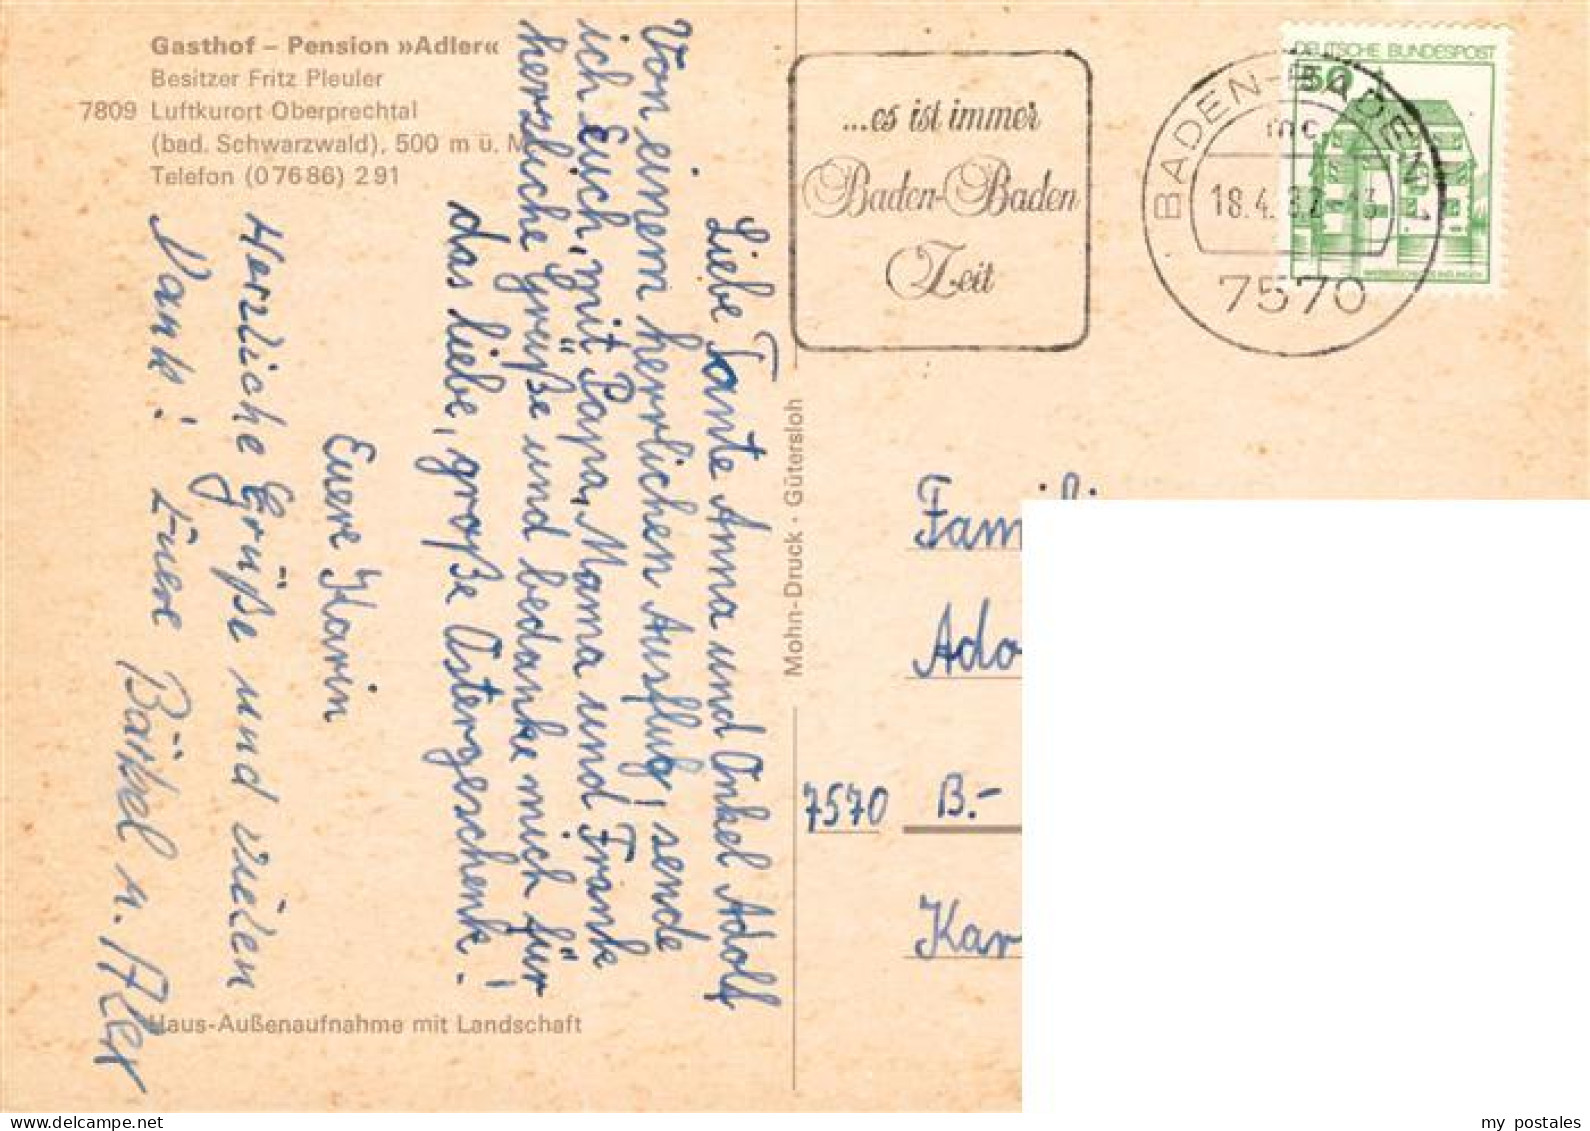 Gasthof – Pension »Adler«
Besitzer Fritz Pleuler
7809 Luftkurort Oberprechtal
(bad. Schwarzwald), 500 m ü. M
Telefon (07686) 291
Liebe Tante Anna und Onkel Adolf
Von einem herrlichen Ausflug, sende
ich Euch, mit Papa, Mama und Frank
herzliche grüße und bedanke mich für
das liebe, große Ostergeschenk!
Euere Karin
Herzliche Grüße und vielen
Dank! Euere Bärbel u.
Haus-Außenaufnahme mit Landschaft
Mohn-Druck · Gütersloh
...es ist immer
Baden-Baden
Zeit
BADEN-BADEN 1
mc
18.4.
7570
DEUTSCHE BUNDESPOST
50
Famili
Ado
7570 B.-
Kar
my postales
delcampe.net